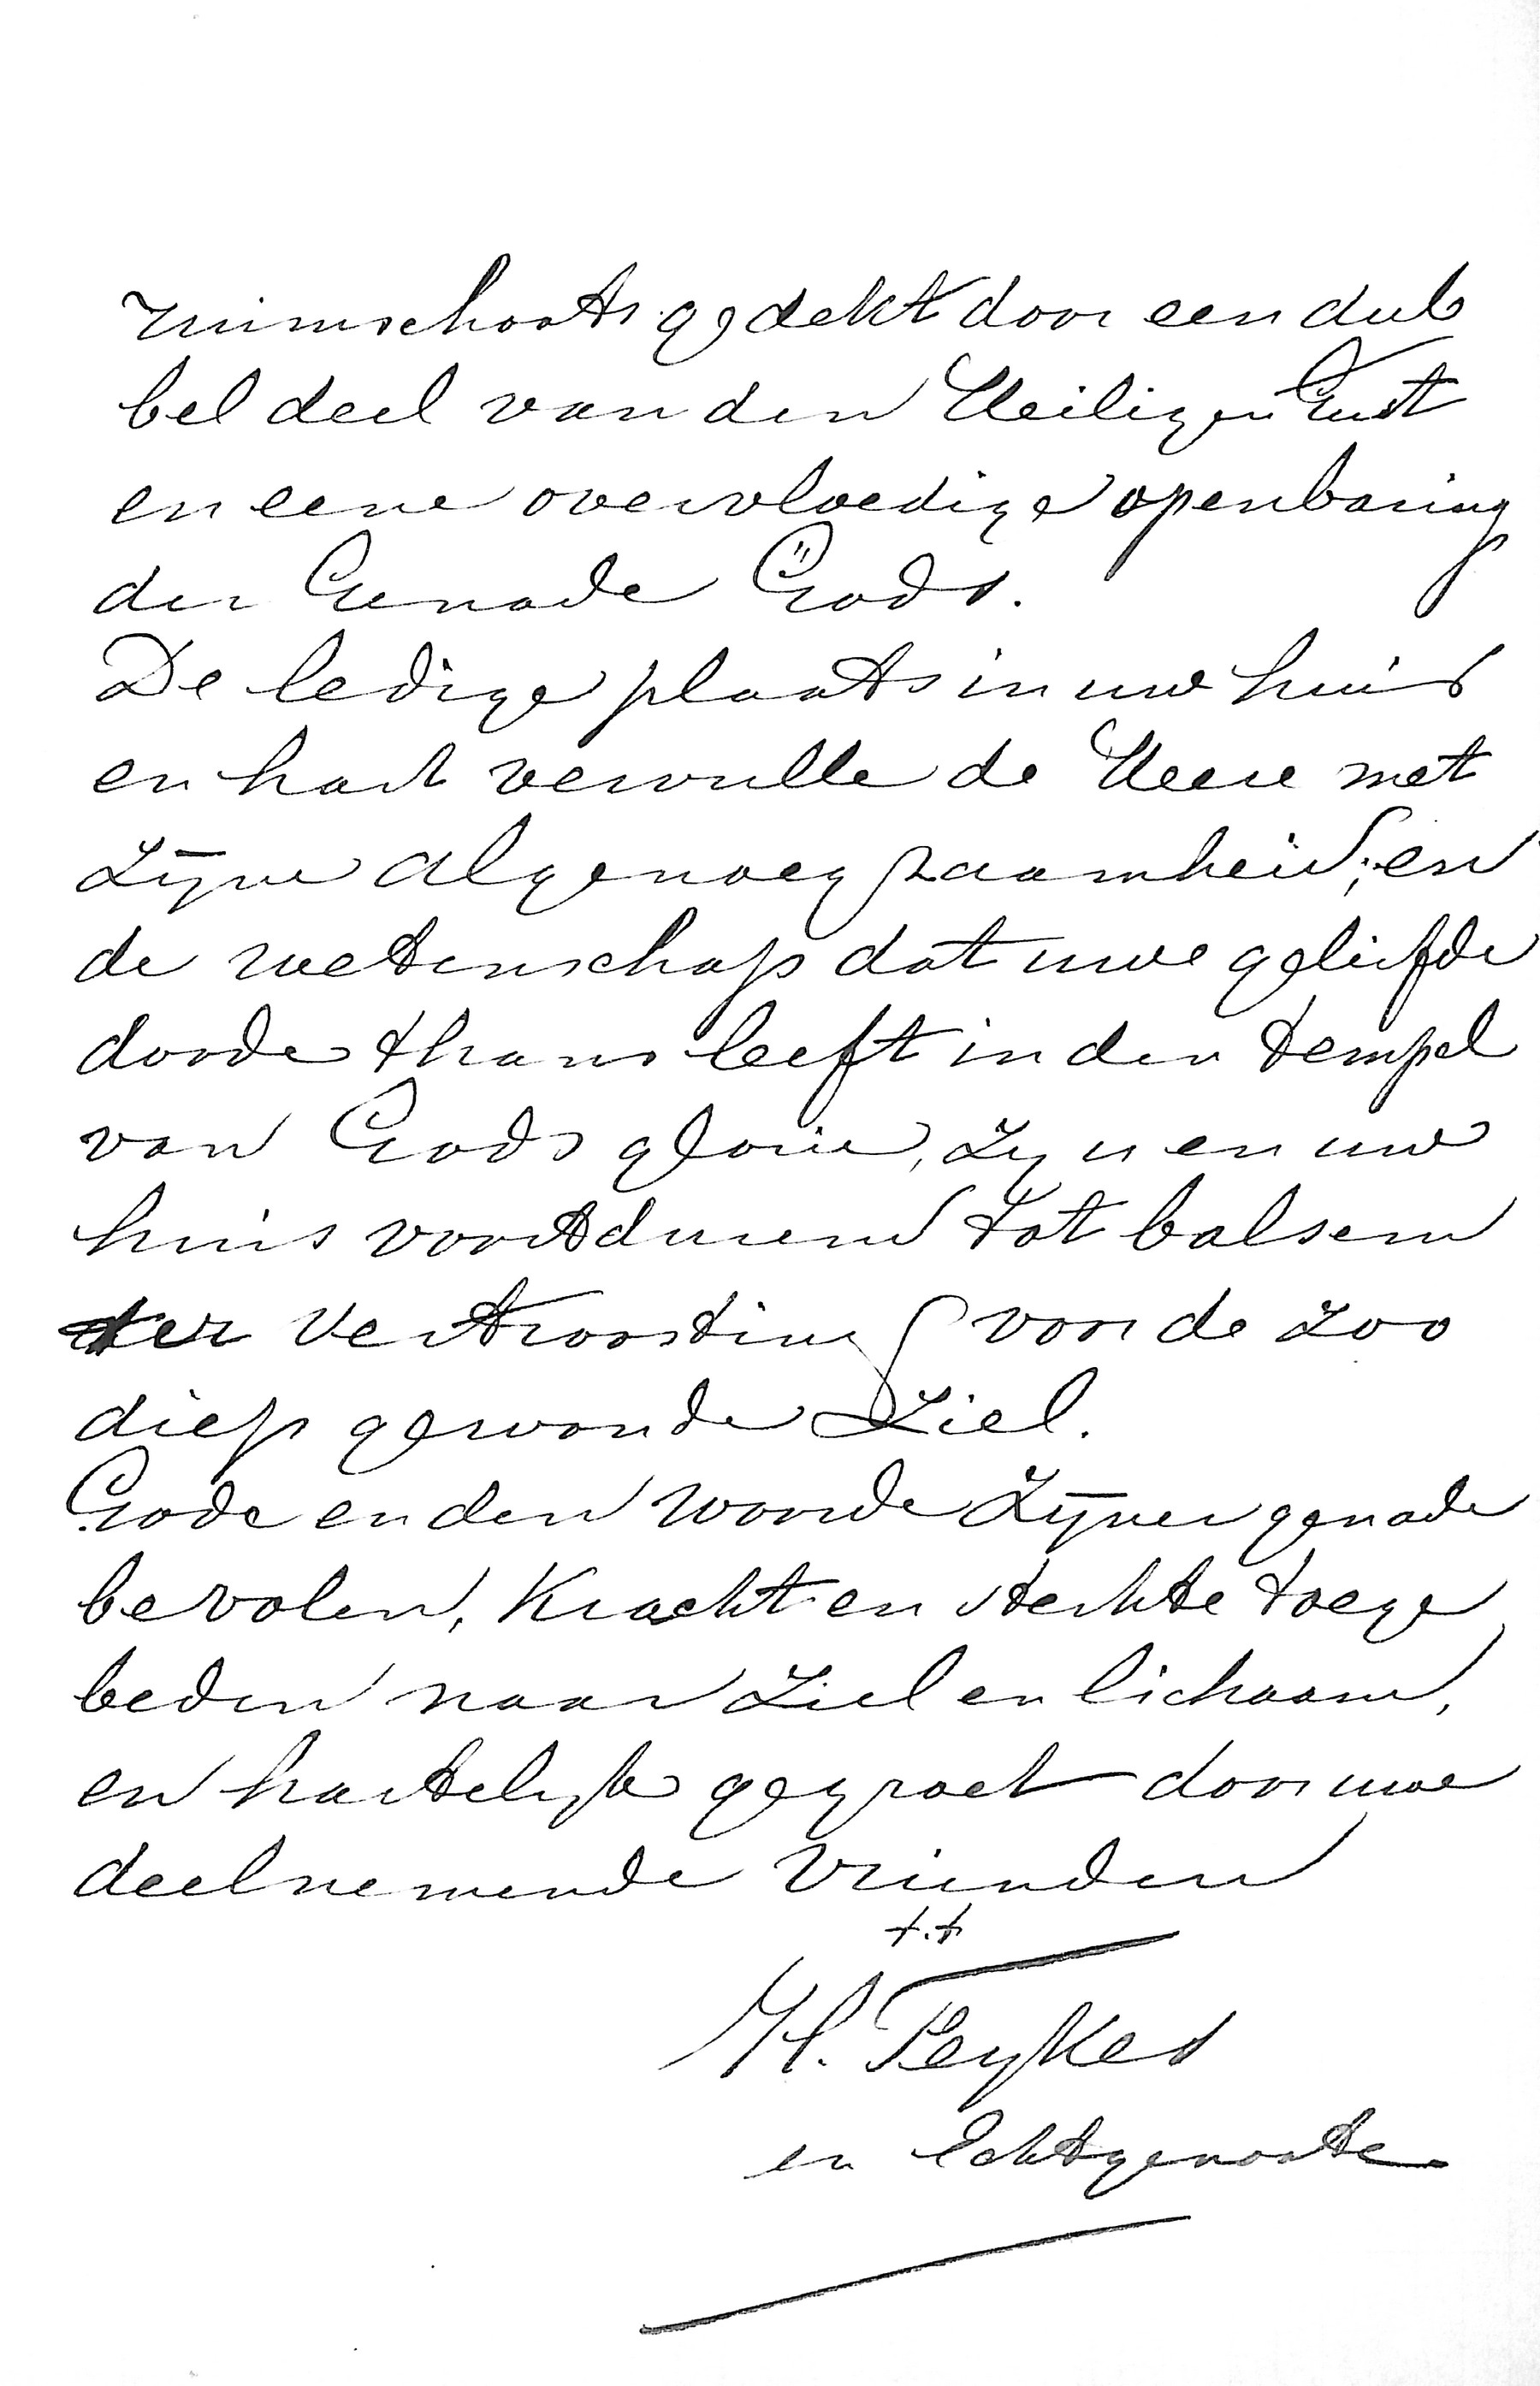 ruimschoots gedekt door een dub
bel deel van den Heiligen Geest
en eene overvloedige openbaring
der Genade Gods.
De ledige plaats in uw huis
en hart vervulle de Heere met
Zijne algenoegzaamheid; en
de wetenschap dat uwe geliefde
doode thans leeft in den tempel
van Gods glorie, zij u en uw
huis voortdurend tot balsem
der vertroosting voor de zoo
diep gewonde Ziel.
Gode en den woorde Zijner genade
bevolen, Kracht en sterkte toege
beden naar Ziel en lichaam,
en hartelijk gegroet door uwe
deelnemende Vrienden
t.t
H. Peykes
en Echtgenoote